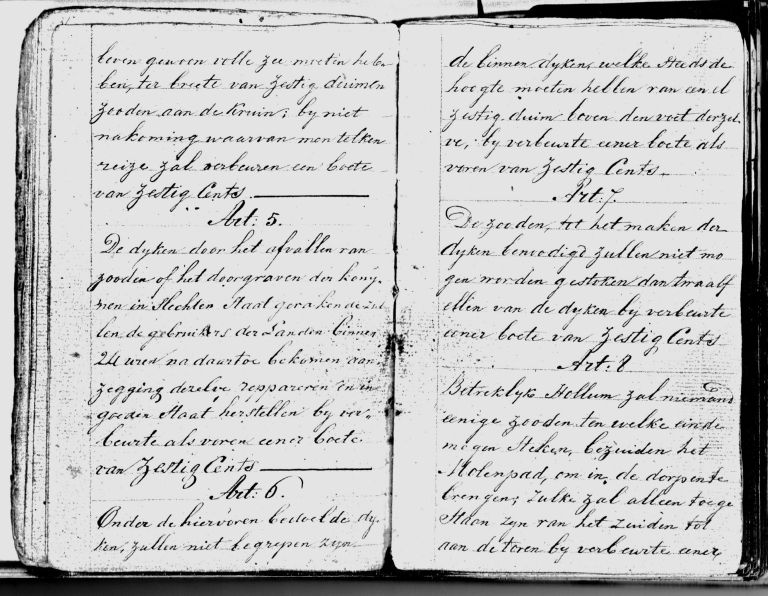 boven gewoon volle zee moeten heb-
ben, ter breete van Zestig duimen
zooden aan de Kruin; by niet
nakoming waarvan men telken
reize zal verbeuren een boete
van Zestig Cents.
Art: 5.
De dyken door het afvallen van
zooden of het doorgraven der kony-
nen in Slechten Staat gerakende zul
len de gebruikers der Landen binnen
24 uren na daartoe bekomen aan-
zegging dezelve reppareren en in
goeden Staat herstellen by ver-
beurte als voren eener boete
van Zestig Cents
Art: 6.
Onder de hiervoren bedoelde dy-
ken, zullen niet begrepen zyn
de binnen dyken, welke Steeds de
hoogte moeten hebben van een el
Zestig duim boven den voet derzel
ve, by verbeurte eener boete als
voren van Zestig Cents.
Art: 7.
De zooden, tot het maken der
dyken benoodigd zullen niet mo
gen worden gestoken dan twaalf
ellen van de dyken by verbeurte
eener boete van Zestig Cents
Art: 8
Betreklyk Hollum zal niemand
eenige zooden ten welke einde
mogen Steken, bezuiden het
Molenpad, om in de dorpen te
brengen; zulke zal alleen toege
Staan zyn van het Zuiden tot
aan de toren by verbeurte eener